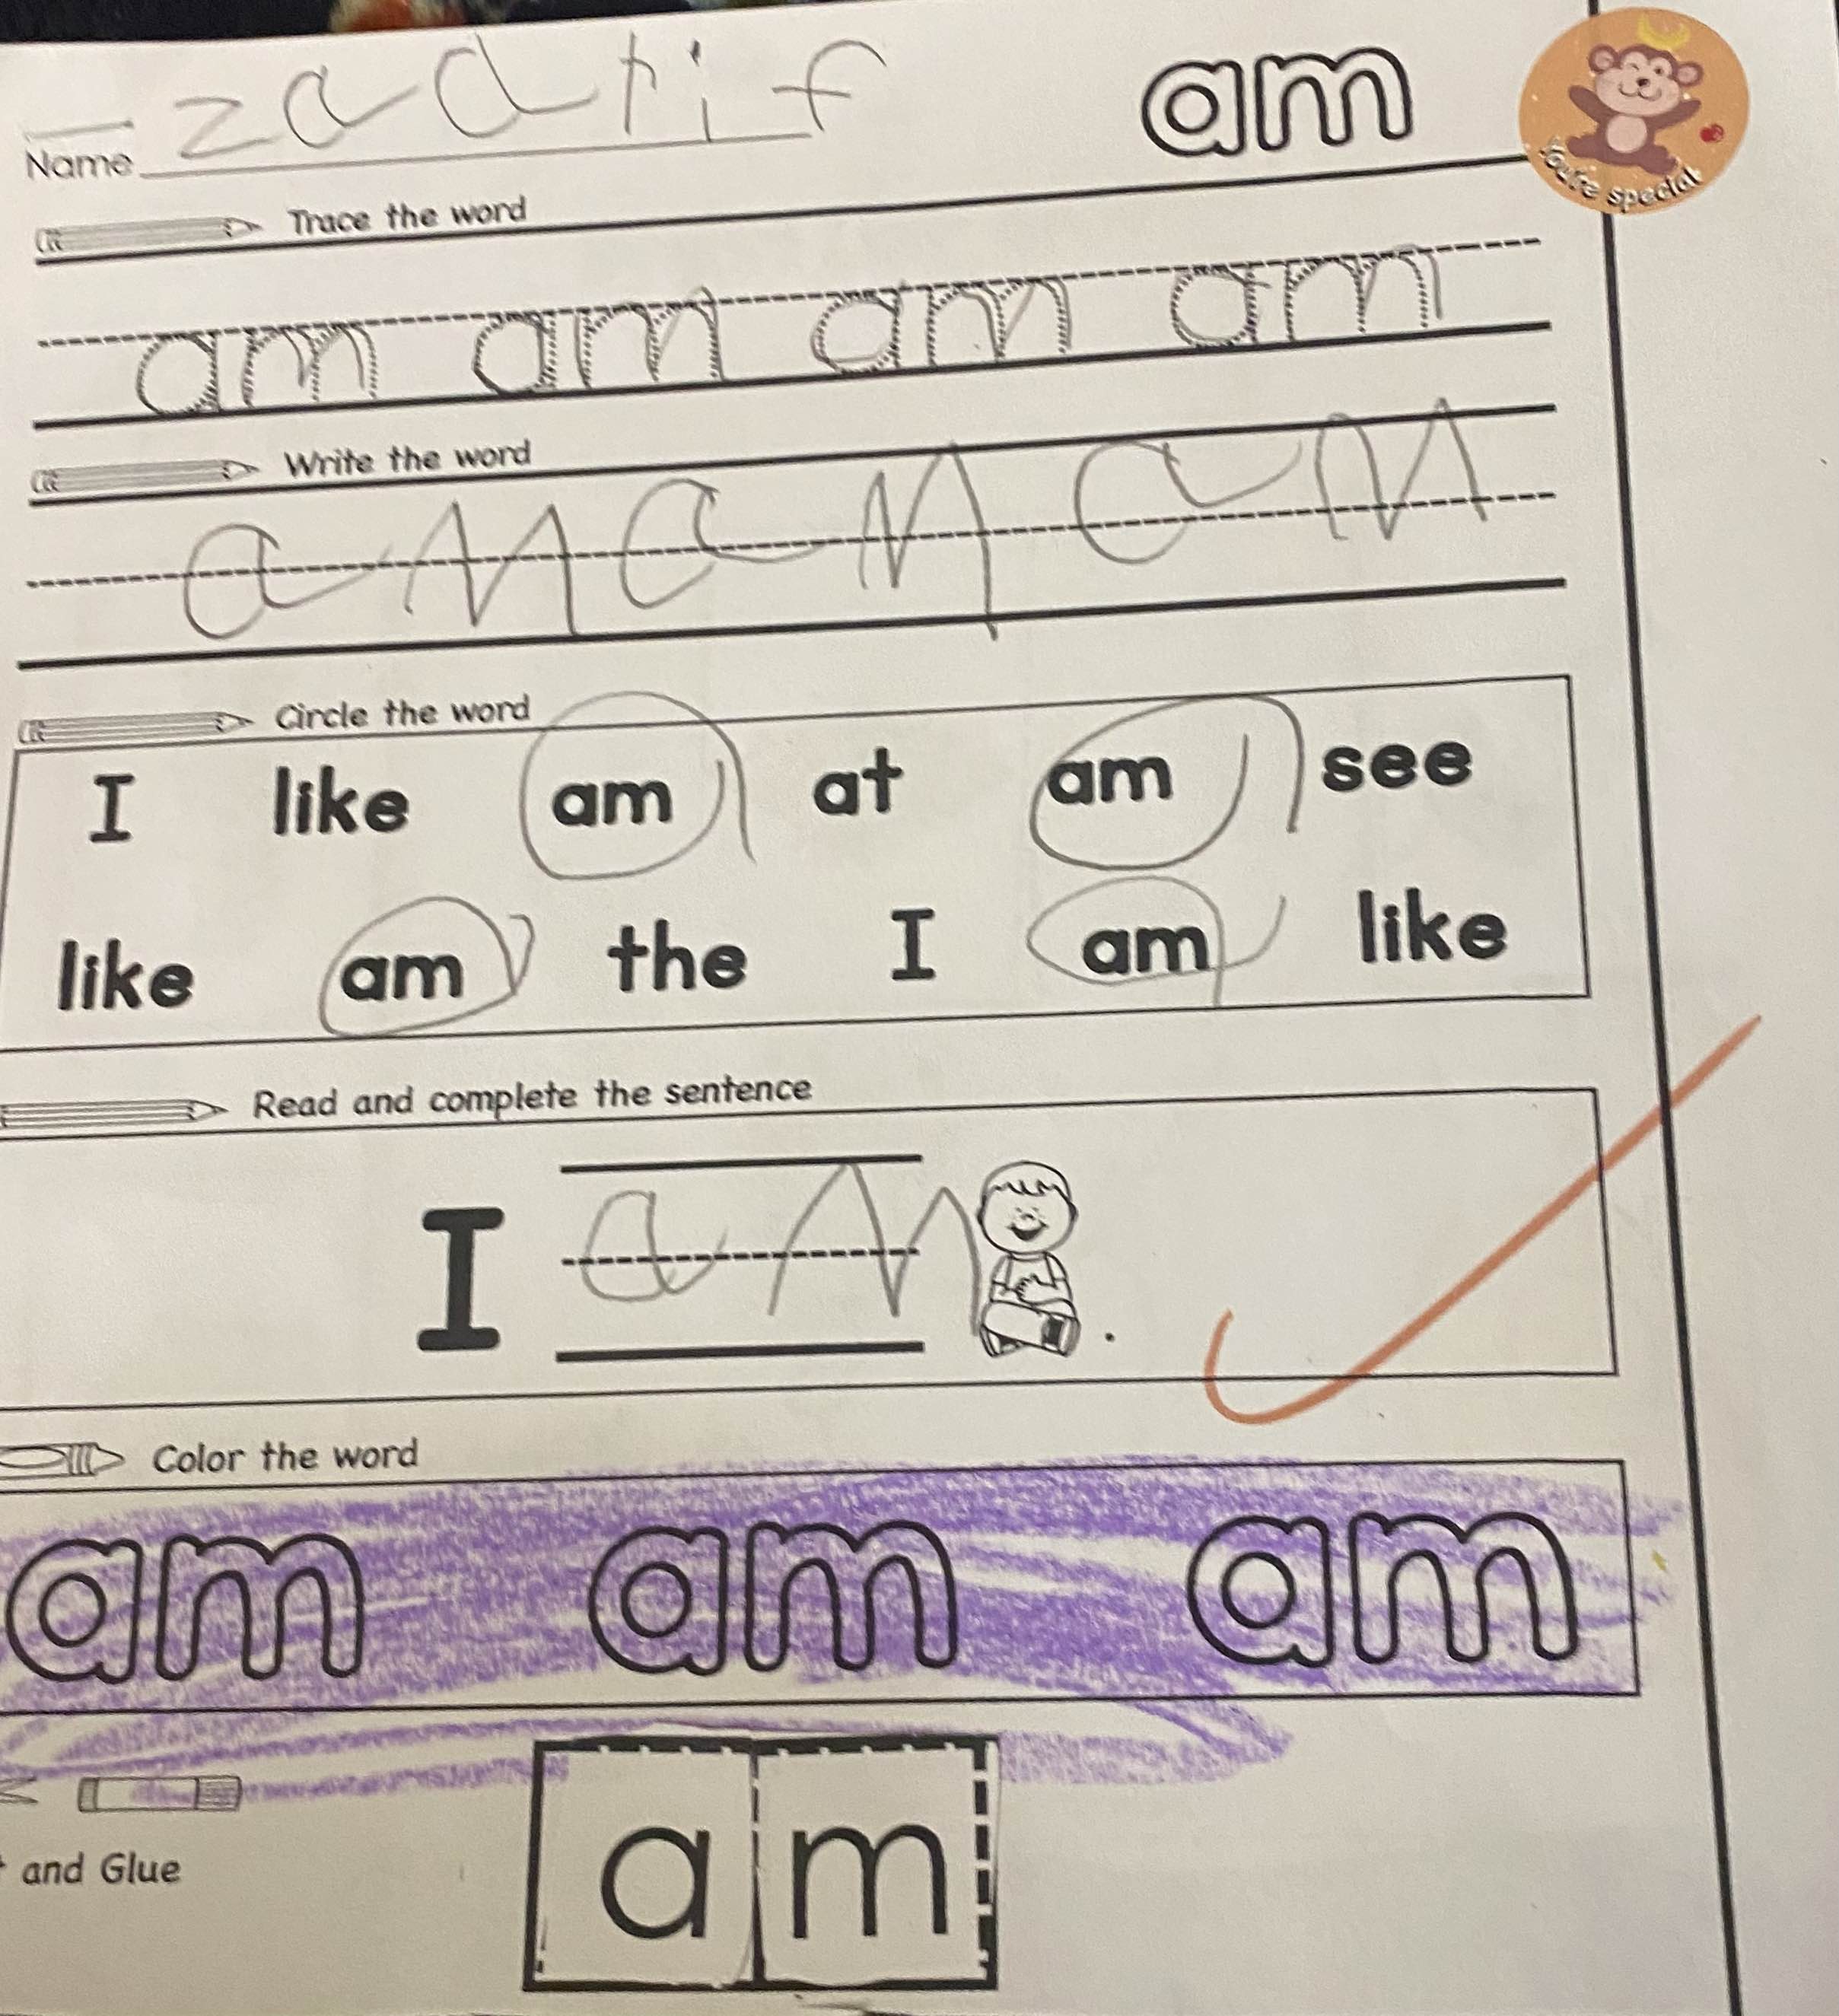 am
You're special
Name
Trace the word
am am am am
Write the word
am am am
Circle the word
I like am at am see
like am the I am like
Read and complete the sentence
I am .
Color the word
am am am
and Glue
a m